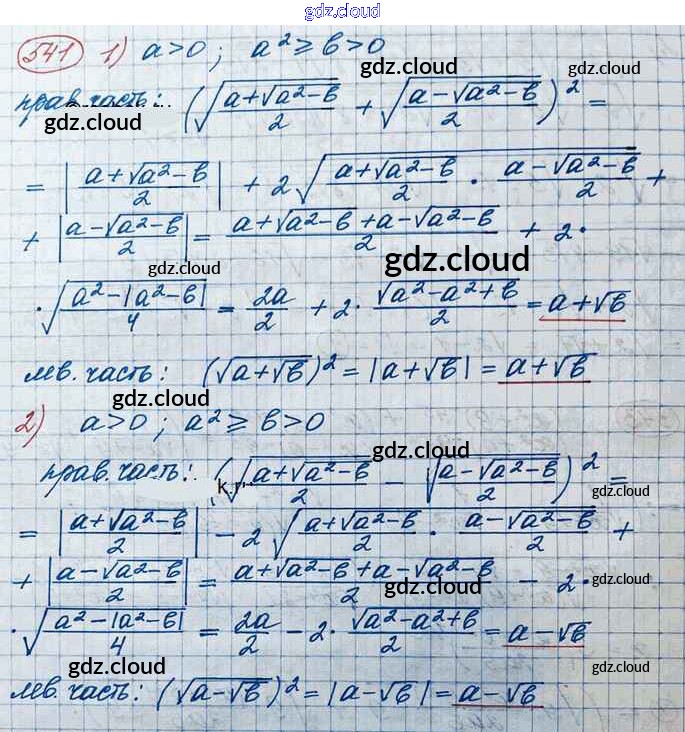 gdz.cloud
541 1) a>0; a²≥b>0
gdz.cloud
прав. часть: (√((a+√(a²-b))/2) + √((a-√(a²-b))/2))² =
gdz.cloud gdz.cloud
= |(a+√(a²-b))/2| + 2√((a+√(a²-b))/2 · (a-√(a²-b))/2) +
+ |(a-√(a²-b))/2| = (a+√(a²-b)+a-√(a²-b))/2 + 2·
gdz.cloud gdz.cloud
·√((a²-|a²-b|)/4) = 2a/2 + 2·√(a²-a²+b)/2 = a+√b
лев. часть: (√(a+√b))² = |a+√b| = a+√b
gdz.cloud
2) a>0; a²≥b>0
gdz.cloud
прав. часть: (√((a+√(a²-b))/2) - √((a-√(a²-b))/2))² =
gdz.cloud
= |(a+√(a²-b))/2| - 2√((a+√(a²-b))/2 · (a-√(a²-b))/2) +
+ |(a-√(a²-b))/2| = (a+√(a²-b)+a-√(a²-b))/2 - 2·
gdz.cloud gdz.cloud
·√((a²-|a²-b|)/4) = 2a/2 - 2·√(a²-a²+b)/2 = a-√b
gdz.cloud gdz.cloud gdz.cloud
лев. часть: (√(a-√b))² = |a-√b| = a-√b